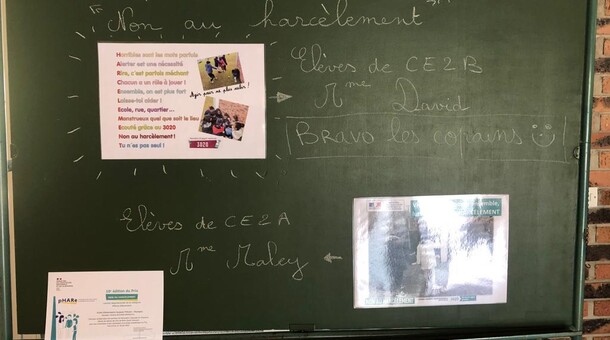 "Non au harcèlement"
Horribles sont les mots parfois
Alerter est une nécessité
Rire, c'est parfois méchant
Chacun a un rôle à jouer !
Ensemble, on est plus fort
Laisse-toi aider !
Ecole, rue, quartier...
Monstrueux quel que soit le lieu
Ecouté grâce au 3020
Non au harcèlement !
Tu n'es pas seul !
Agir pour ne plus subir !
3020
Elèves de CE2B
Mme David
Bravo les copains
Elèves de CE2A
Mme Maley
ensemble,
HARCÈLEMENT
pHARe
10e édition du Prix